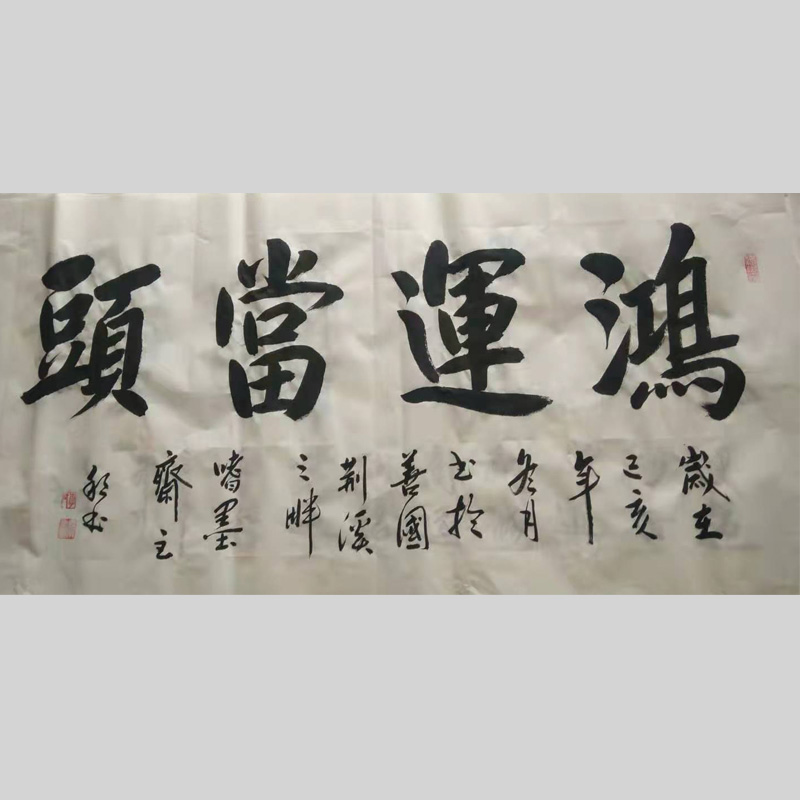 鴻運當頭
歲在
己亥
年
冬月
书於
善國
荆溪
之畔
嗜墨
齋主